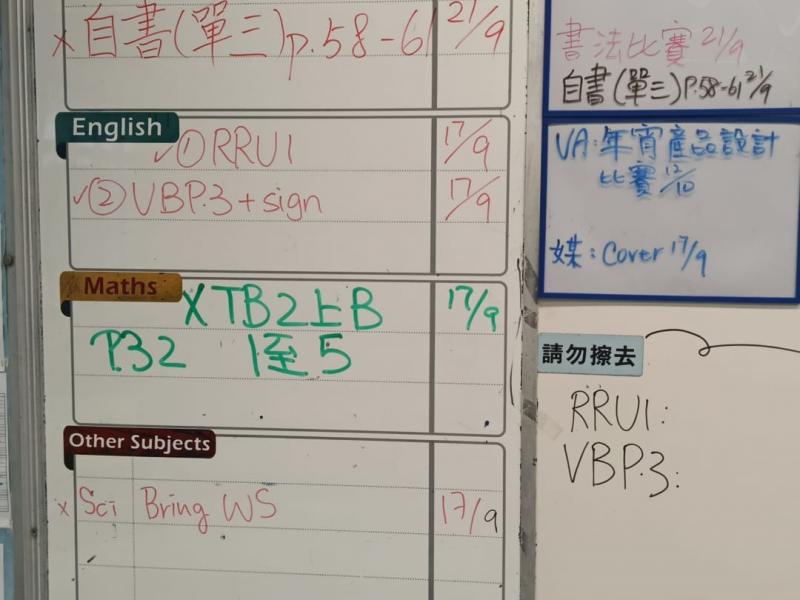 x 自書(單三)p.58-61 21/9
English
✓①RRU1 17/9
✓②VBP.3+sign 17/9
Maths
X TB2上B 17/9
P.32 1至5
Other Subjects
x Sci Bring WS 17/9
書法比賽 21/9
自書(單三)P.58-61 21/9
VA:年宵產品設計
比賽 12/10
媒:Cover 17/9
請勿擦去
RRU1:
VBP.3: